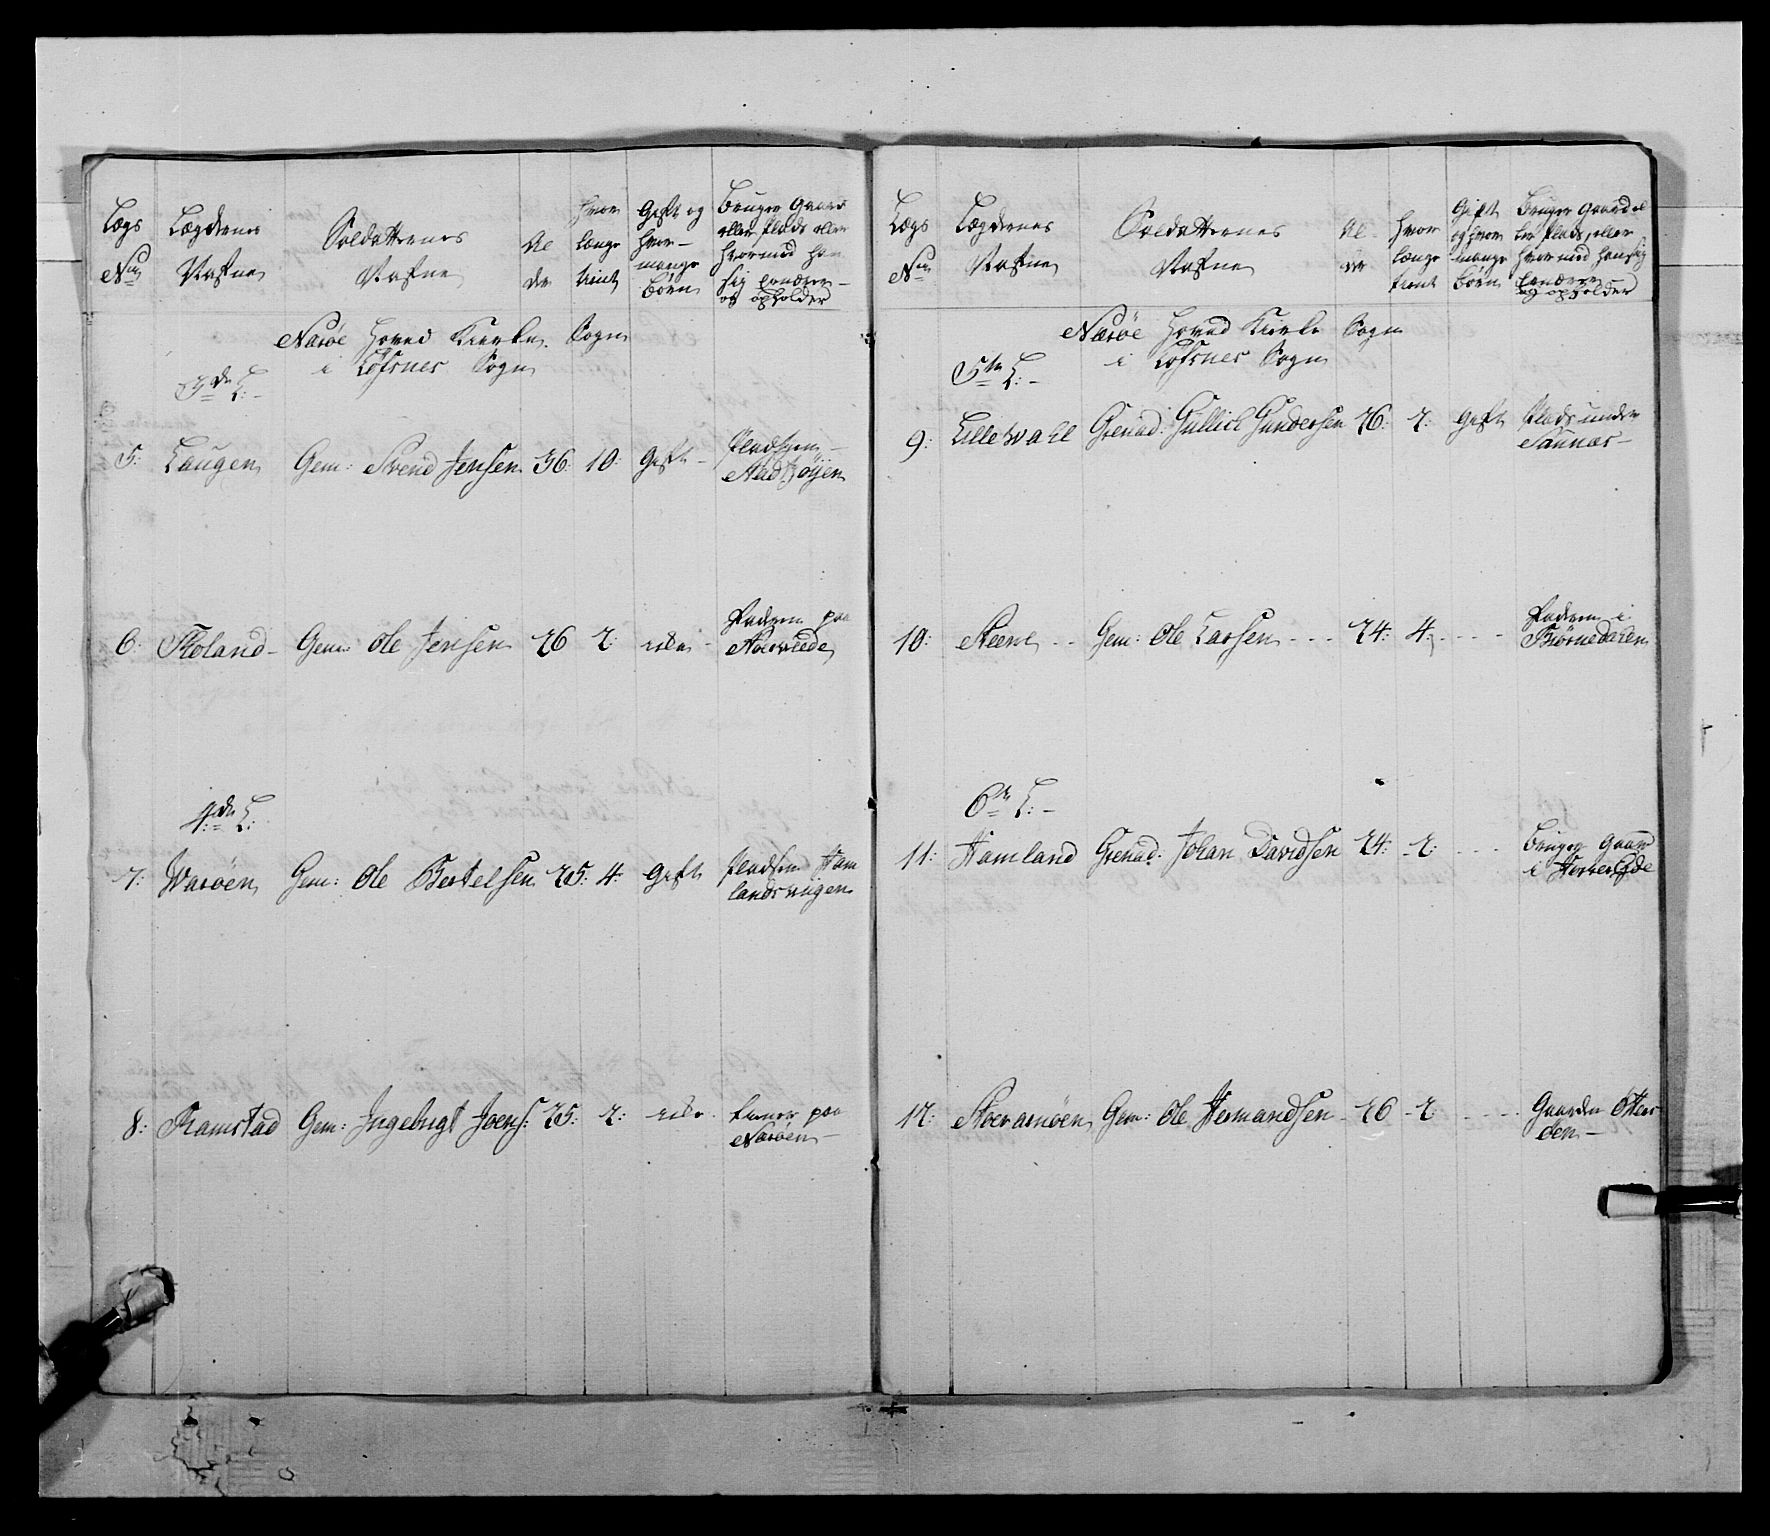 Lægs
No
Lægdernes
Nafne
Soldatternes
Nafne
Al
der
hvor
længe
tient
Gift og
hvor
mange
børn
Bruger Gaard
eller Plads eller
hvormed han
sig ernærer
og opholder
Nærøe Hoved Kierke Sogn
i Lofsnes Sogn
3de L:
5: Laugen Gem: Svend Jensen 36 10: Gift Pladsen
6: Floland Gem: Ole Jensen 26 2: Paa
4de L:
7: Warøen Gem: Ole Bertelsen 25: 4: Gift Pladsen Ham
landsviigen
8: Ramstad Gem: Ingebrigt Joens: 25: 2: tiener paa
Nærøen
Lægs
No
Lægdernes
Nafne
Soldatternes
Nafne
Al
der
hvor
længe
tient
Gift
og hvor
mange
børn
Bruger Gaard el
ler Plads, eller
hvormed han sig
ernærer
og opholder
Nærøe Hoved Kierke Sogn
i Lofsnes Sogn
5te L:
9: Lillewahl Grenad: Gullich Gundersen 26: 2: Gift Plads under
Saunæs
10: Steene Gem: Ole Larsen 24: 4: Faderen i
Biørnedalen
6te L:
11: Hamland Grenad: Johan Davidsen 24: 2: Bruger Gaard
i
12: Gem: Ole Hermandsen 26 2 Gaarden Otters
øen